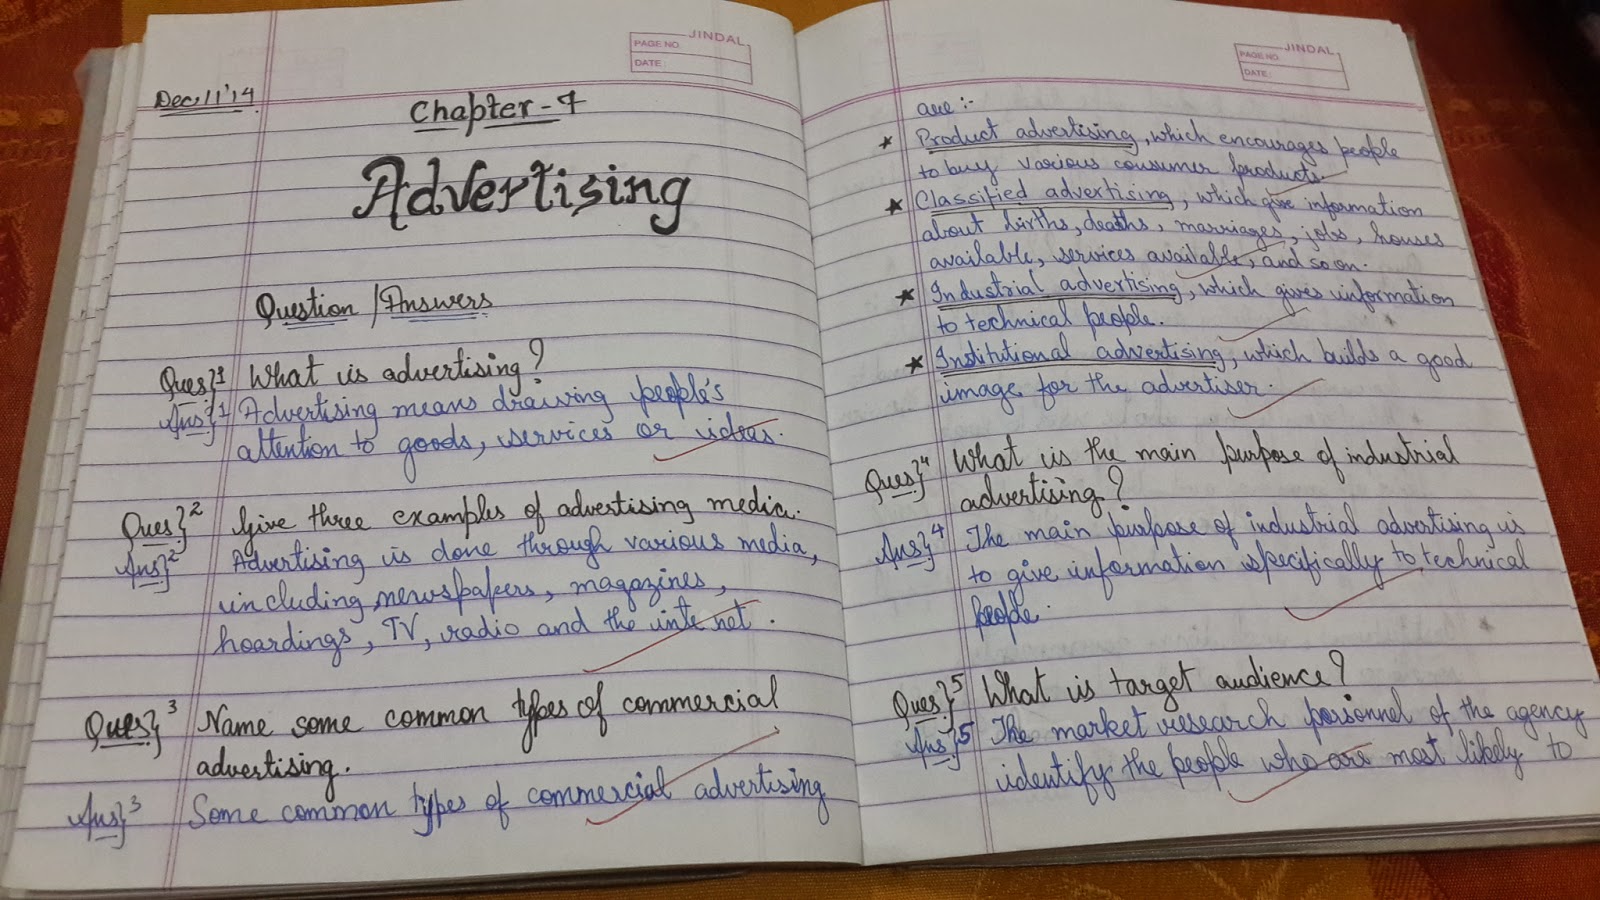 JINDAL
PAGE NO.
DATE:
Dec,11'14
Chapter-7
Advertising
Question/Answers
Ques}1 What is advertising?
Ans}1 Advertising means drawing people's
attention to goods, services or ideas.
Ques}2 Give three examples of advertising media.
Ans}2 Advertising is done through various media,
including newspapers, magazines,
hoardings, TV, radio and the internet.
Ques}3 Name some common types of commercial
advertising.
Ans}3 Some common types of commercial advertising
JINDAL
PAGE NO.
DATE:
are :-
★ Product advertising, which encourages people
to buy various consumer products.
★ Classified advertising, which give information
about births, deaths, marriages, jobs, houses
available, services available, and so on.
★ Industrial advertising, which gives information
to technical people.
★ Institutional advertising, which builds a good
image for the advertiser.
Ques}4 What is the main purpose of industrial
advertising?
Ans}4 The main purpose of industrial advertising is
to give information specifically to technical
people.
Ques}5 What is target audience?
Ans}5 The market research personnel of the agency
identify the people who are most likely to